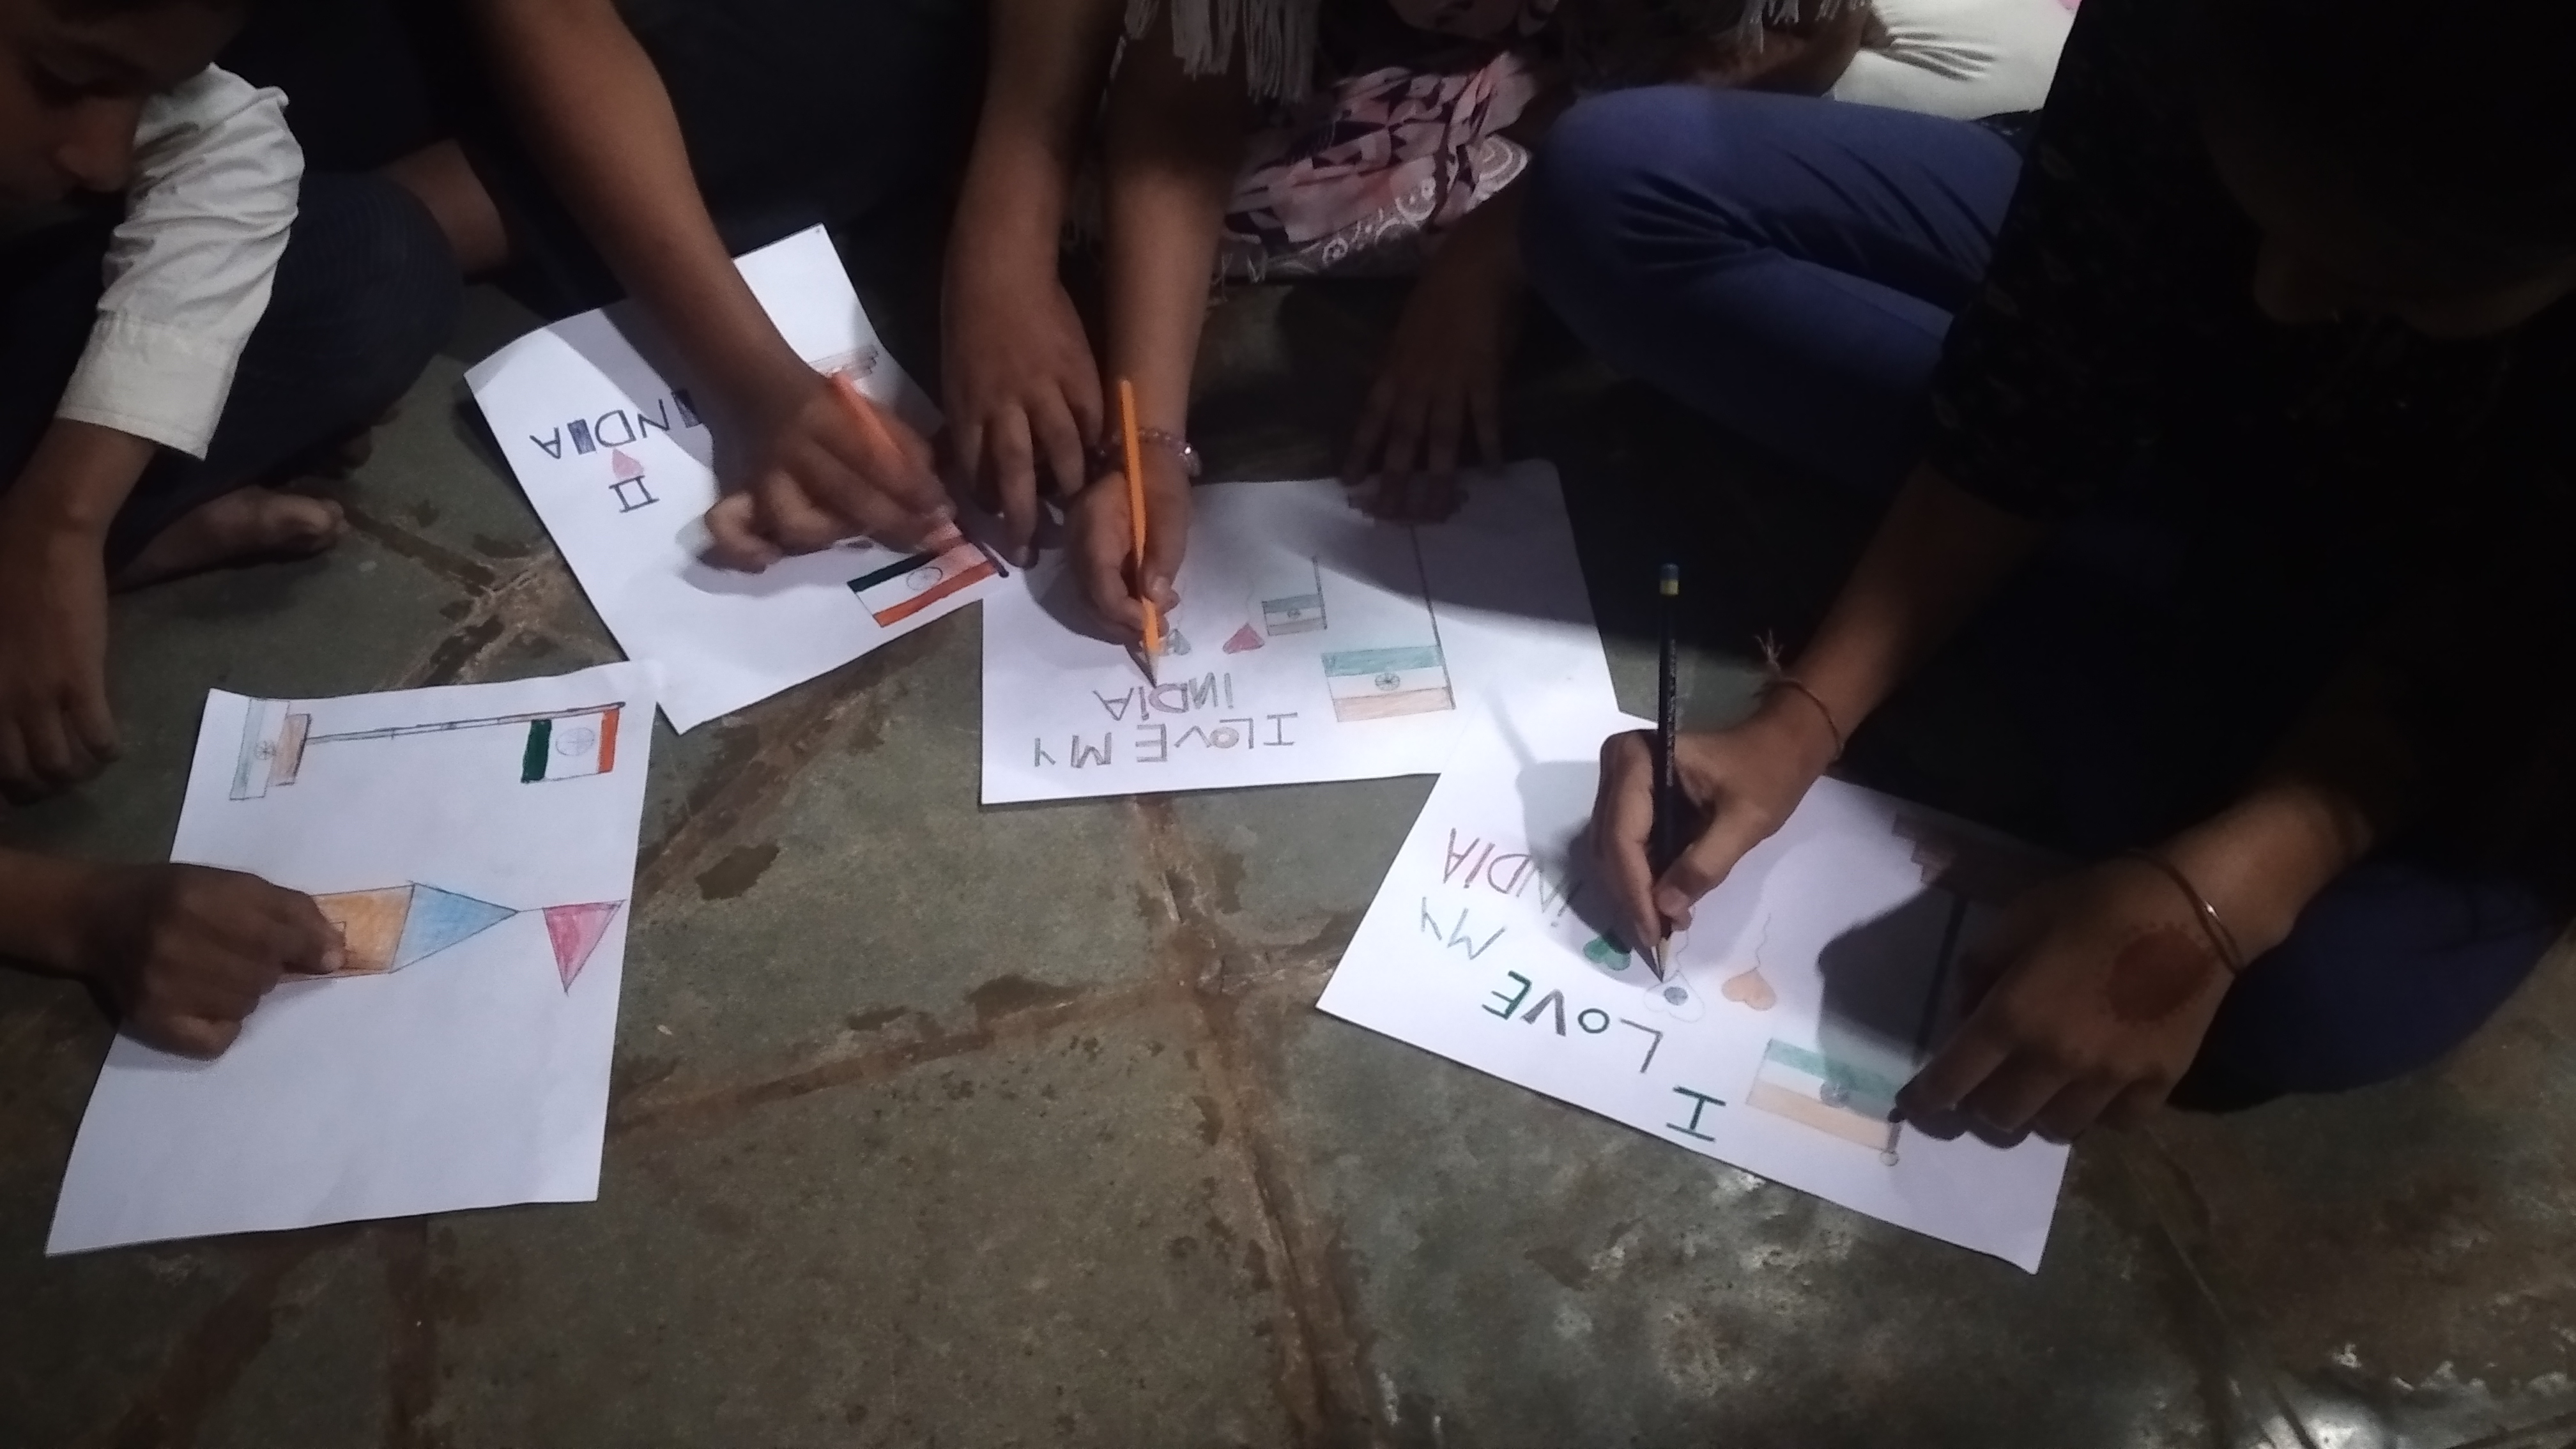 I
INDIA
I LOVE MY
INDIA
I LOVE MY
INDIA